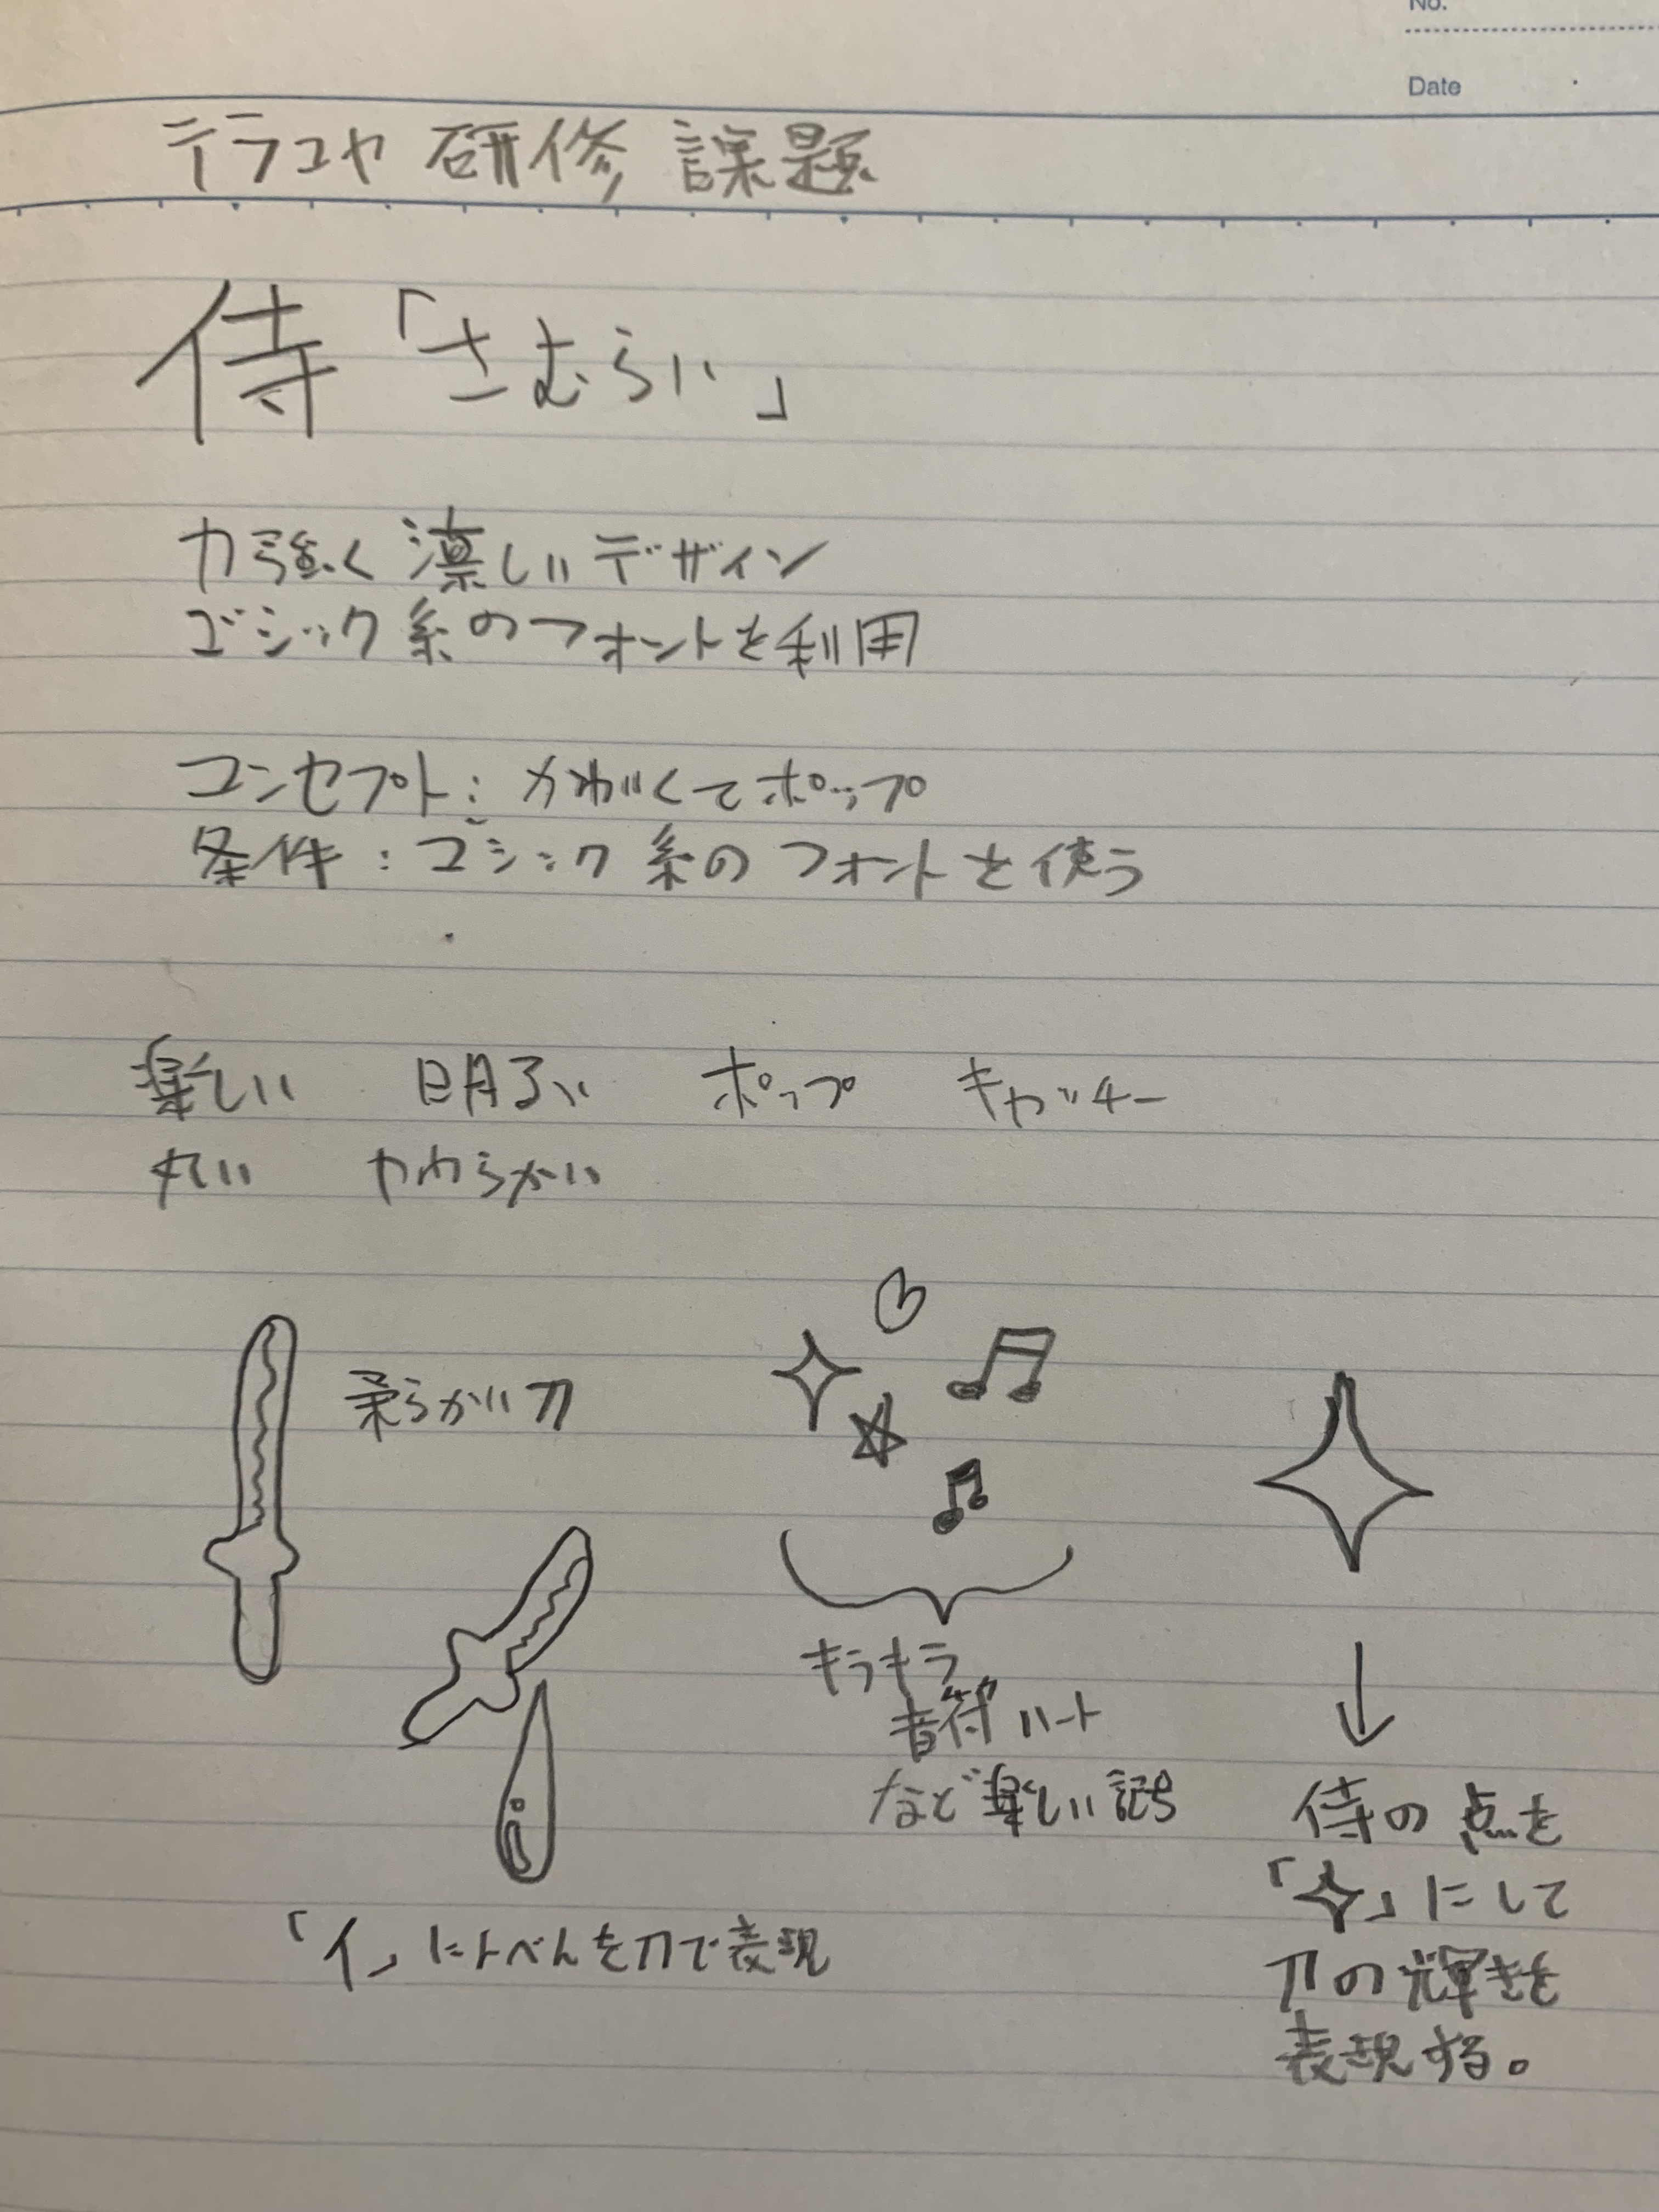 No.
Date
テラコヤ 研修 課題
侍「さむらい」
力強く 凛しいデザイン
ゴシック系のフォントを利用
コンセプト：かわいくてポップ
条件：ゴシック系のフォントを使う
楽しい 明るい ポップ キャッチー
丸い やわらかい
柔らかい刀
「イ」にんべんを刀で表現
キラキラ
音符 ハート
など楽しい記号
侍の点を
「✧」にして
刀の輝きを
表現する。